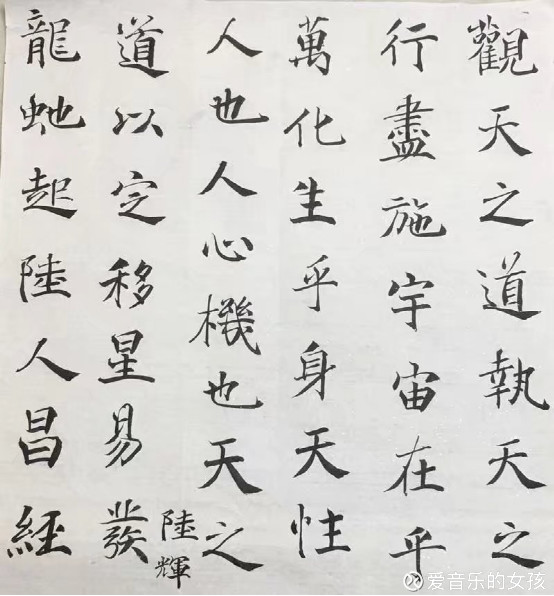 觀天之道執天之
行盡施宇宙在乎
萬化生乎身天性
人也人心機也天之
道以定移星易發
龍虵起陸人昌經
陸輝
爱音乐的女孩